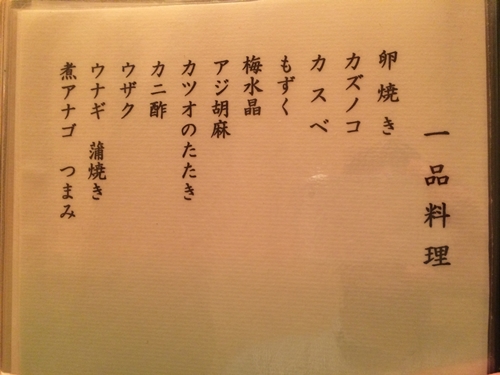 一品料理
卵焼き
カズノコ
カスベ
もずく
梅水晶
アジ胡麻
カツオのたたき
カニ酢
ウザク
ウナギ 蒲焼き
煮アナゴ つまみ